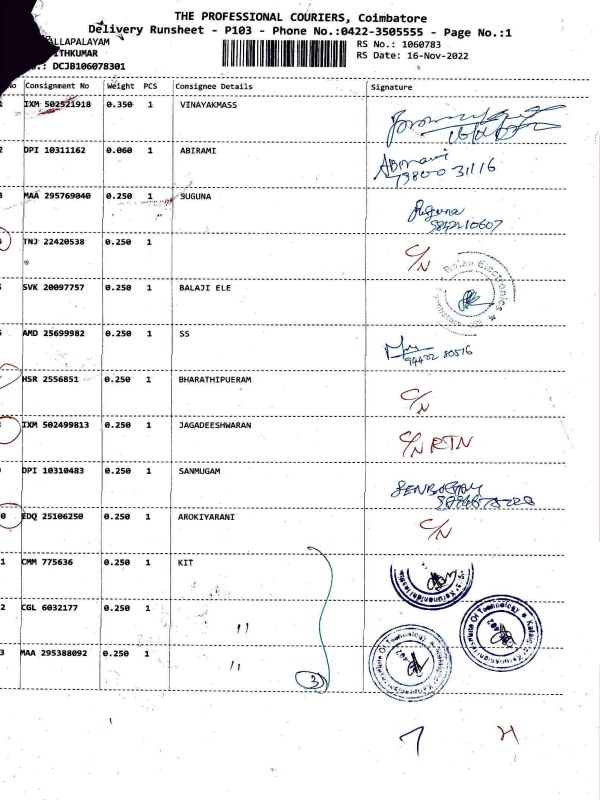 THE PROFESSIONAL COURIERS, Coimbatore
Delivery Runsheet - P103 - Phone No.:0422-3505555 - Page No.:1
ALLAPALAYAM
ITHKUMAR
.: DCJB106078301
RS No.: 1060783
RS Date: 16-Nov-2022
No Consignment No Weight PCS Consignee Details Signature
1 IXM 502521918 0.350 1 VINAYAKMASS
2 DPI 10311162 0.060 1 ABIRAMI Abirami
3 MAA 295769040 0.250 1 SUGUNA Suguna
9842210607
TNJ 22420538 0.250 1 C/N
SVK 20097757 0.250 1 BALAJI ELE Balaji Electronics
AMD 25699982 0.250 1 SS
94422 80516
HSR 2556851 0.250 1 BHARATHIPUERAM C/N
IXM 502499813 0.250 1 JAGADEESHWARAN C/N RTN
DPI 10310483 0.250 1 SANMUGAM
0 EDQ 25106250 0.250 1 AROKIYARANI C/N
1 CMM 775636 0.250 1 KIT
2 CGL 6032177 0.250 1 "
3 MAA 295388092 0.250 1 "
3
7